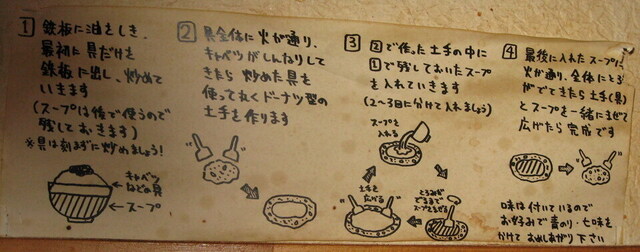 1 鉄板に油をしき、
最初に具だけを
鉄板に出し、炒めて
いきます
(スープは後で使うので
残しておきます)
※具は刻まずに炒めましょう!
キャベツ
などの具
スープ
2 具全体に火が通り、
キャベツがしんなりして
きたら 炒めた具を
使って丸くドーナツ型の
土手を作ります
3 2で作った土手の中に
1で残しておいたスープ
を入れていきます
(2〜3回に分けて入れましょう)
スープを
入れる
土手を
広げる
とろみが
でるまで
スープとまぜる
4 最後に入れたスープに
火が通り、全体にとろみ
がでてきたら土手(具)
とスープを一緒にまぜて
広げたら完成です
味は付いているので
お好みで青のり・七味を
かけて お召しあがり下さい